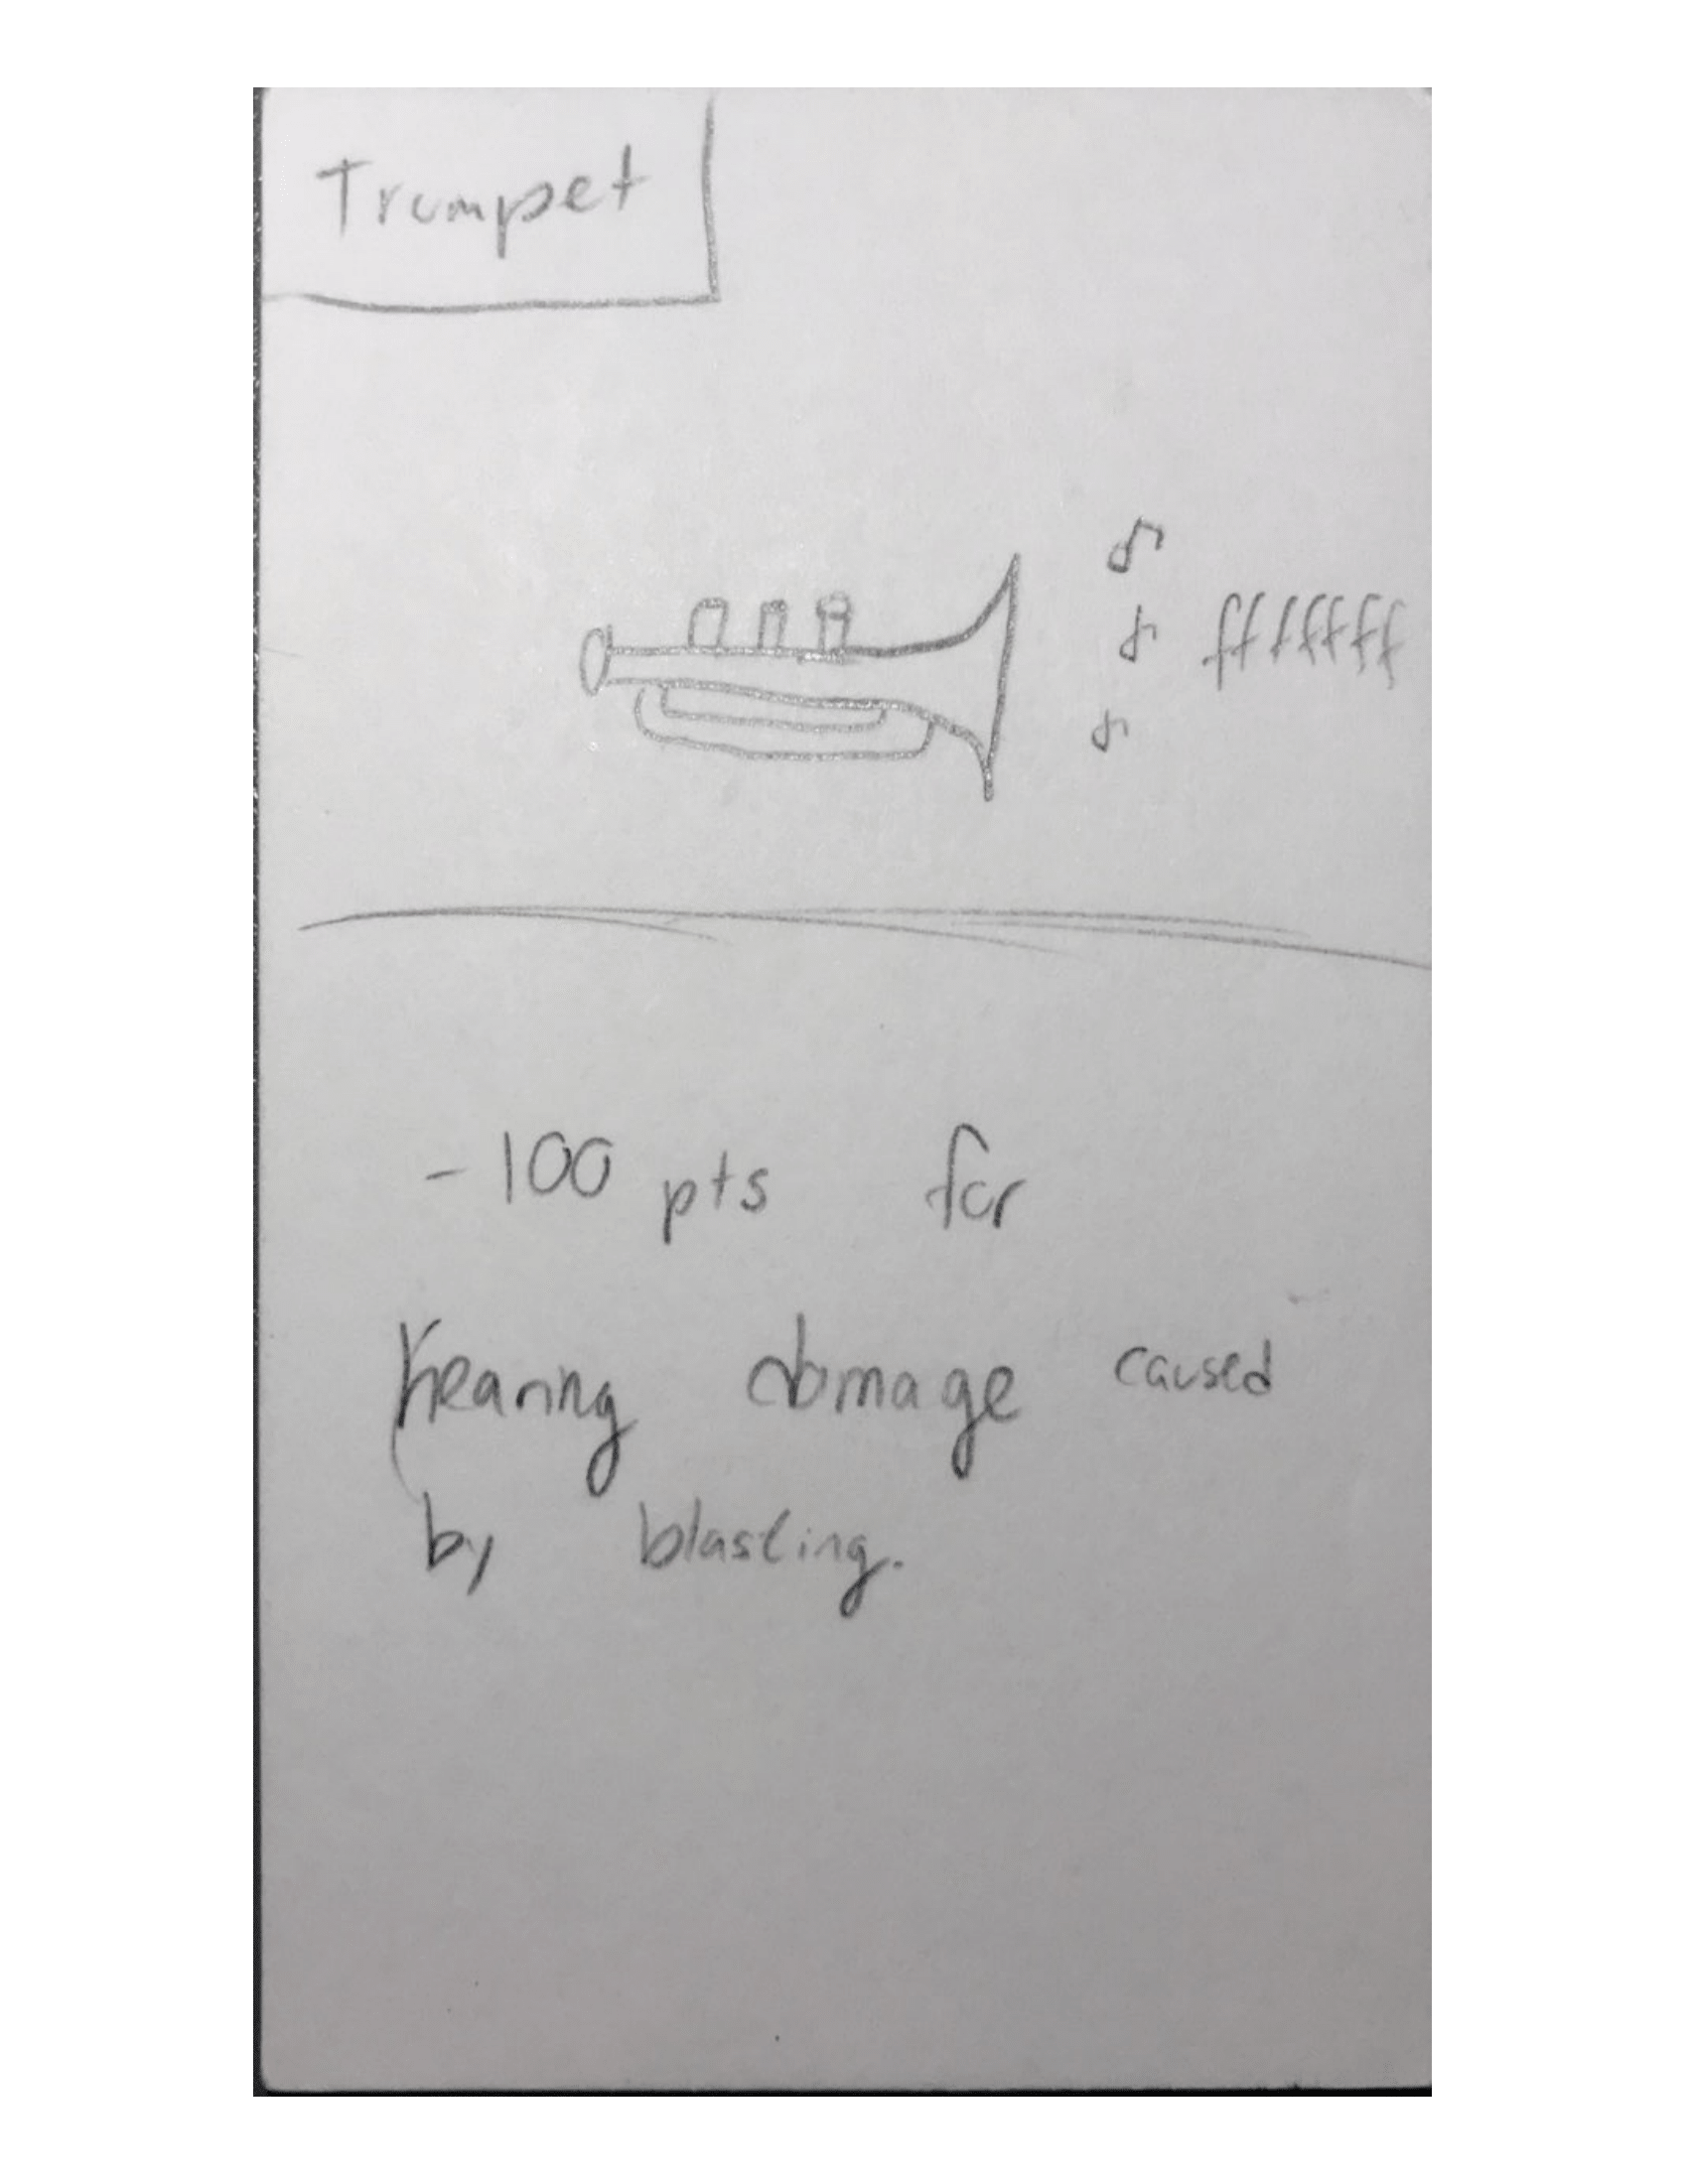 Trumpet
fffffff
-100 pts for
hearing damage caused
by blasting.